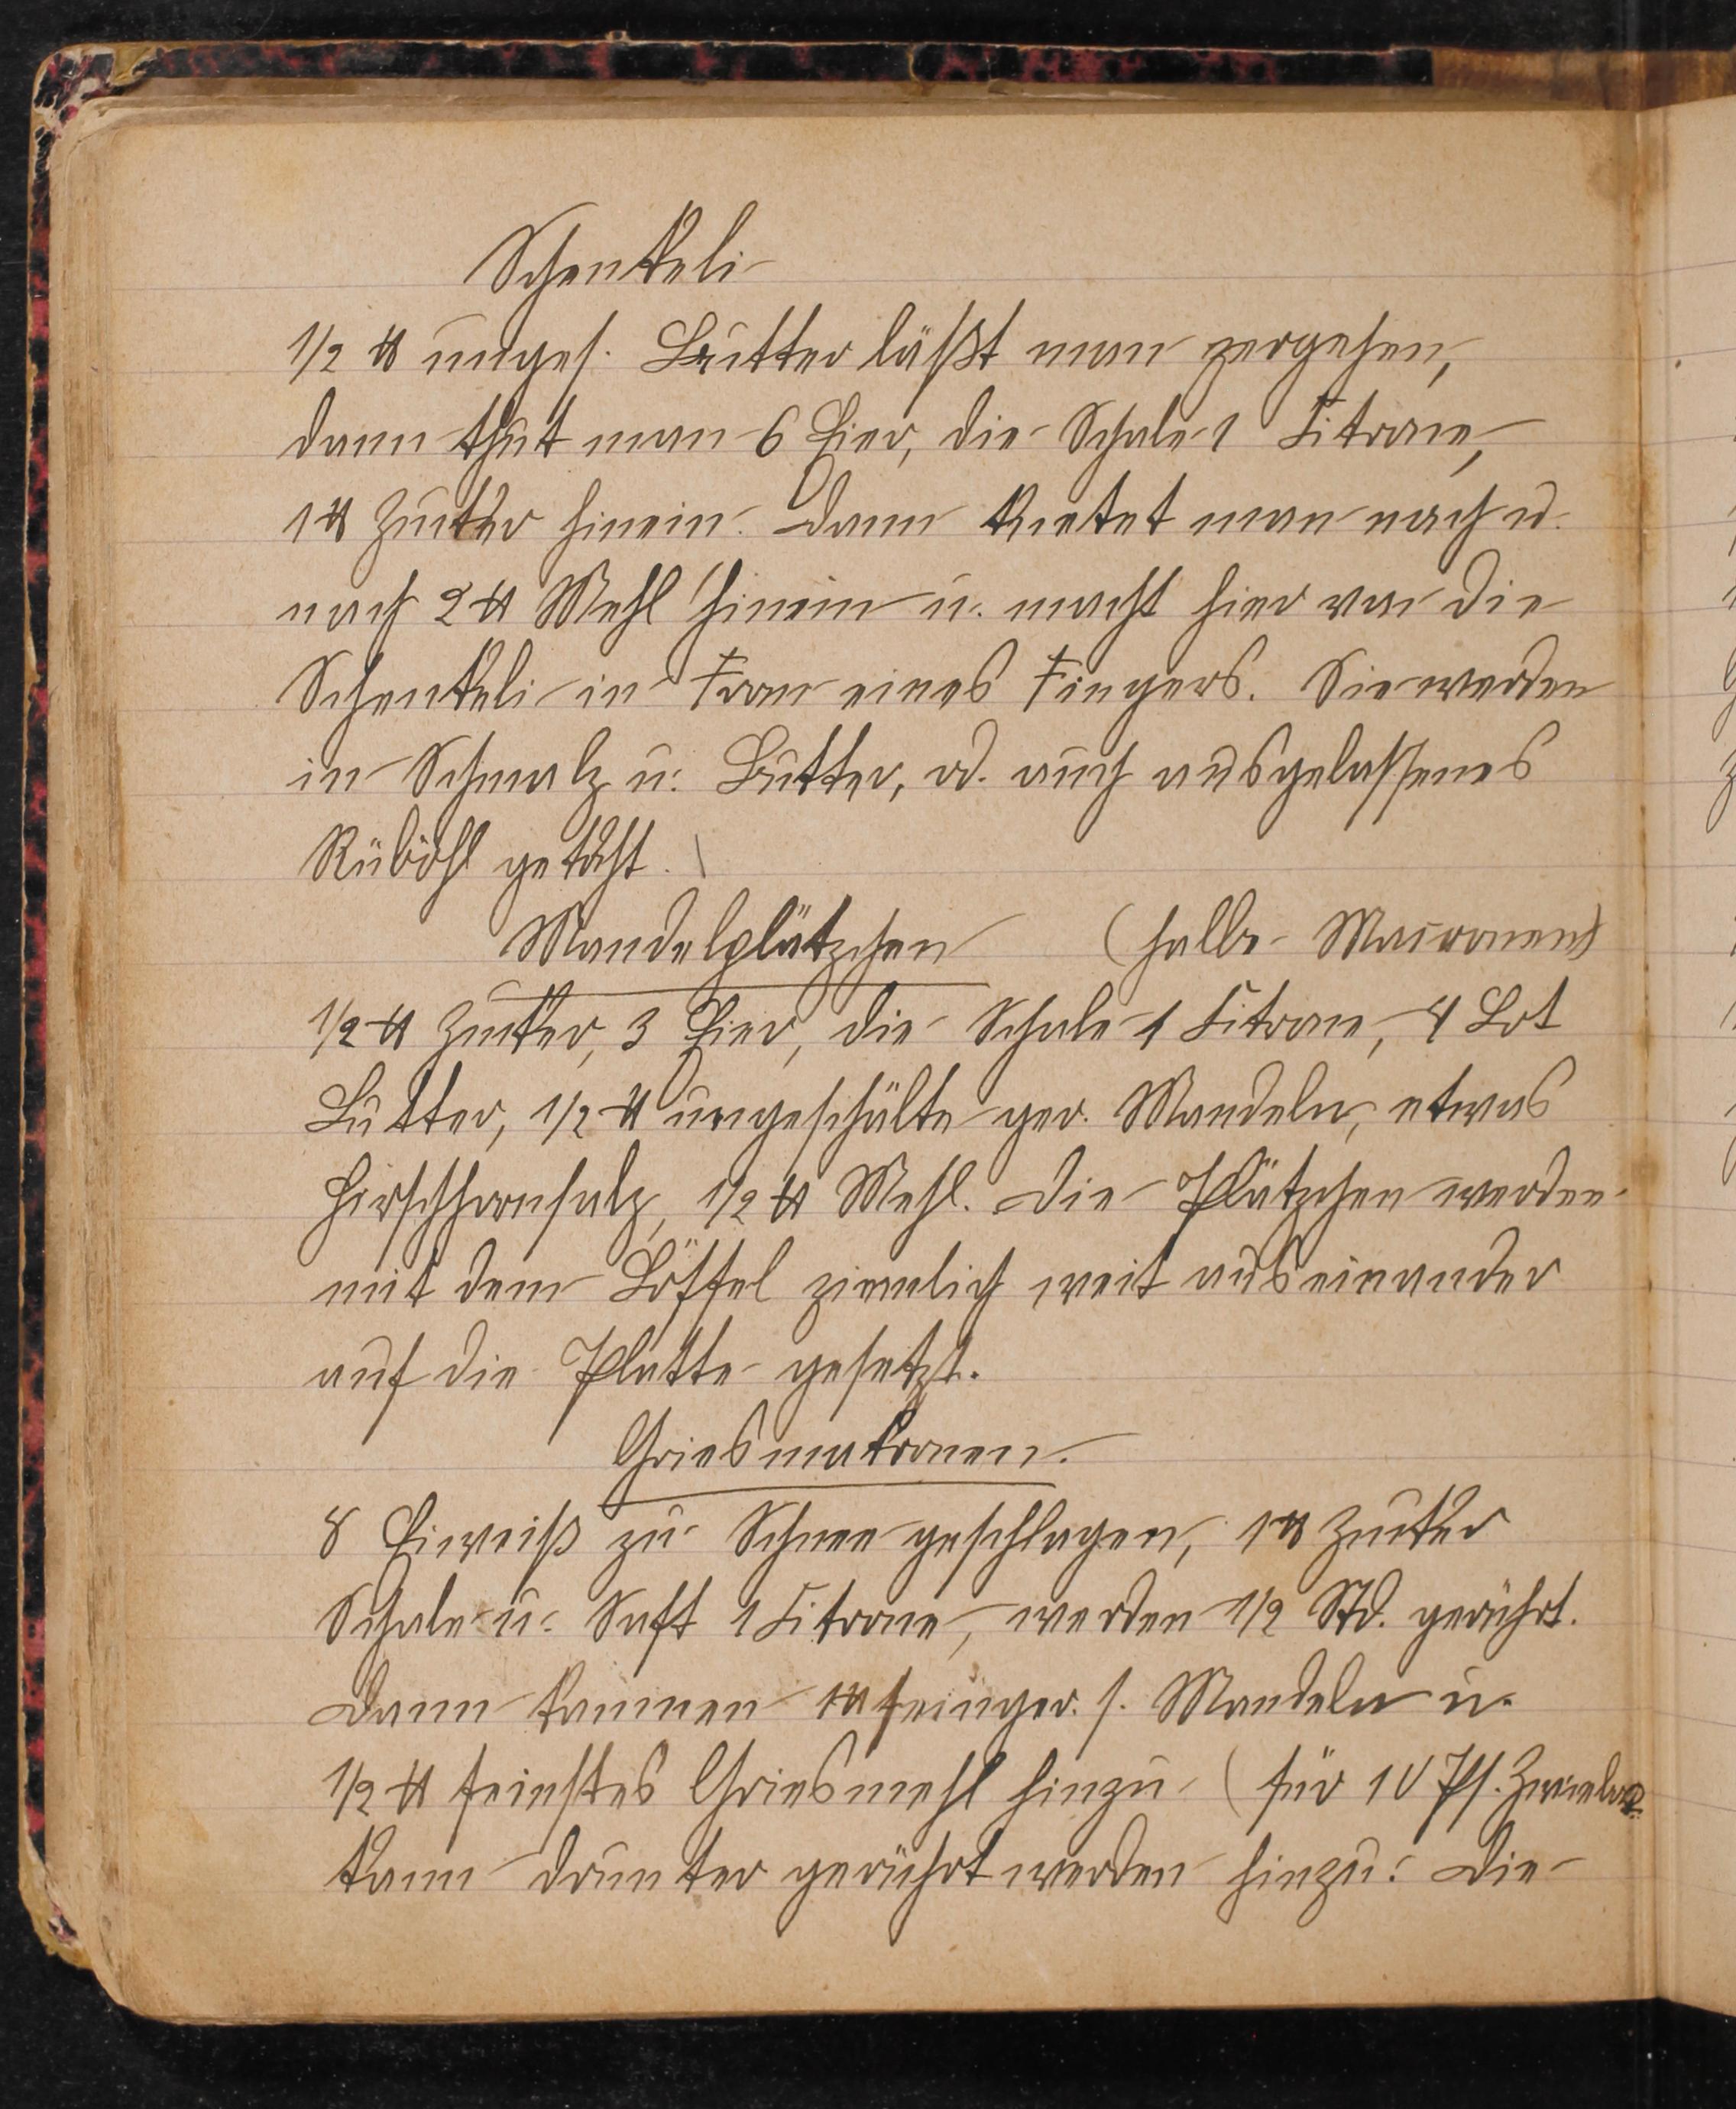 Schenkeli
1/2 ℔ unges. Butter läßt man zergehen,
dann thut man 6 Eier, die Schale 1 Citrone,
1 ℔ Zucker hinein. Dann knetet man nach u.
nach 2 ℔ Mehl hinein u. macht hier von die
Schenkeli in Form eines Fingers. Sie werden
in Schmalz u. Butter, od. auch ausgelassenes
Rüböhl gekocht.
Mandelplätzchen (halbe Macronen)
1/2 ℔ Zucker, 3 Eier, die Schale 1 Citrone, 4 Lot
Butter, 1/2 ℔ ungeschälte ger. Mandeln, etwas
Hirschhornsalz, 1/2 ℔ Mehl. Die Plätzchen werden
mit dem Löffel ziemlich weit auseinander
auf die Platte gesetzt.
Griesmakronen.
8 Eiweiß zu Schnee geschlagen, 1 ℔ Zucker
Schale u. Saft 1 Citrone, werden 1/2 Std. gerührt.
Dann kommen 1 ℔ feinger. s. Mandeln u.
1/2 ℔ feinstes Griesmehl hinzu (für 10 Pf. Zwieback
kann drunter gerührt werden hinzu. Die